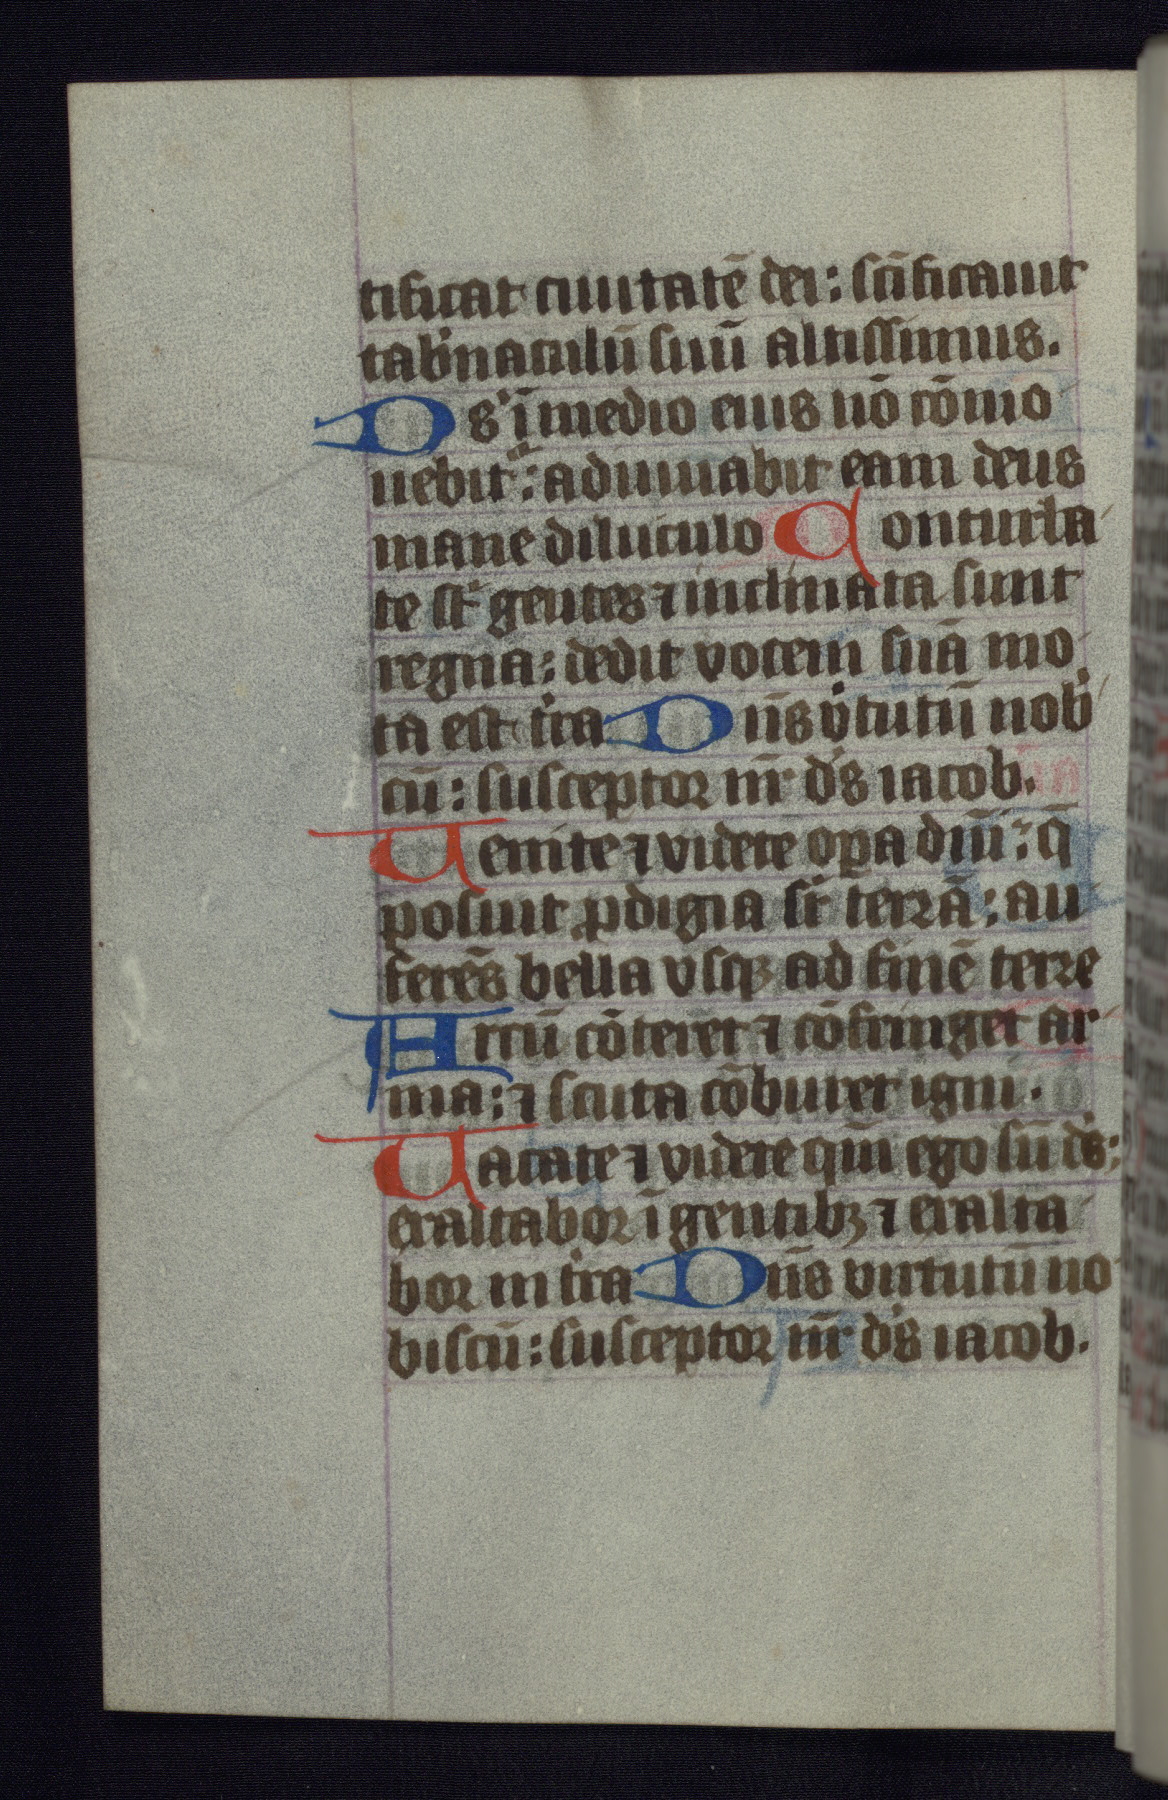 tificat ciuitatē dei: scīficauit
tab'naculū suū altissimus.
Ds ī medio eius nō cōmo
uebit: adiuuabit eam deus
mane diluculo Conturba
te st gentes ⁊ inclinata sunt
regna: dedit vocem suā mo
ta est t'ra Dn̄s v'tutū nob'
cū: susceptor nr̄ ds iacob.
Uenite ⁊ videte oꝑa dn̄i: q̄
posuit ꝓdigia sr̄ terrā: au
ferēs bella vsqꝫ ad finē terre
Arcū cōteret ⁊ cōfringet ar
ma: ⁊ scuta cōburet igni.
Uacate ⁊ videte qm̄ ego sū ds:
exaltabor ī gentibꝫ ⁊ exalta
bor in t'ra Dn̄s virtutū no
biscū: susceptor nr̄ ds iacob.